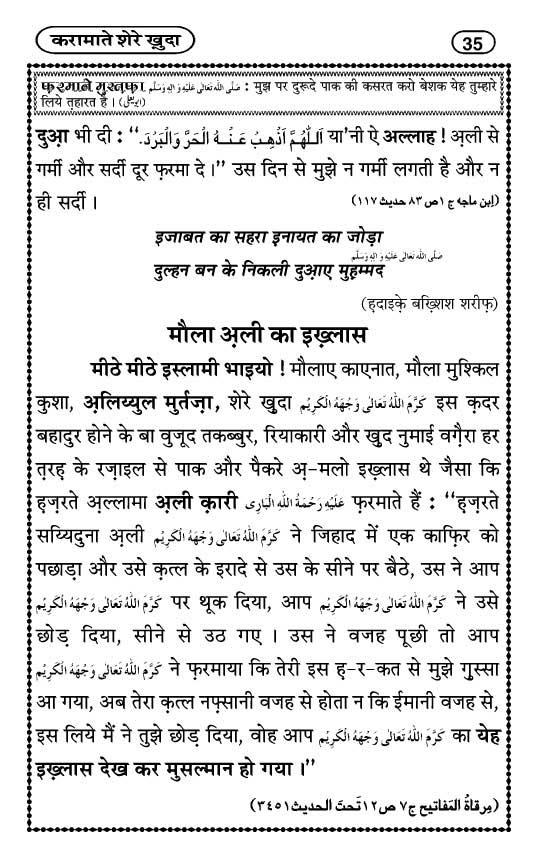 करामाते शेरे ख़ुदा
35
फ़रमाने मुस्तफ़ा صَلَّى اللهُ تَعَالٰى عَلَيْهِ وَاٰلِهٖ وَسَلَّم : मुझ पर दुरूदे पाक की कसरत करो बेशक येह तुम्हारे
लिये तहारत है ।
दुआ़ भी दी : ‘‘اَللّٰهُمَّ اَذْهِبْ عَنْهُ الْحَرَّ وَالْبَرْدَ. या’नी ऐ अल्लाह ! अ़ली से
गर्मी और सर्दी दूर फ़रमा दे ।’’ उस दिन से मुझे न गर्मी लगती है और न
ही सर्दी । (اِبن ماجه ج ١ ص ٨٣ حديث ١١٧)
इजाबत का सहरा इनायत का जोड़ा
दुल्हन बन के निकली दुआ़ए मुह़म्मद صَلَّى اللهُ تَعَالٰى عَلَيْهِ وَاٰلِهٖ وَسَلَّم
(ह़दाइके़ बख़्शिश शरीफ़)
मौला अ़ली का इख़्लास
मीठे मीठे इस्लामी भाइयो ! मौलाए काएनात, मौला मुश्किल
कुशा, अ़लिय्युल मुर्तज़ा, शेरे ख़ुदा كَرَّمَ اللهُ تَعَالٰى وَجْهَهُ الْكَرِيْم इस क़दर
बहादुर होने के बा वुजूद तकब्बुर, रियाकारी और ख़ुद नुमाई वग़ैरा हर
त़रह़ के रज़ाइल से पाक और पैकरे अ़-मलो इख़्लास थे जैसा कि
ह़ज़रते अ़ल्लामा अ़ली क़ारी عَلَيْهِ رَحْمَةُ اللهِ الْبَارِى फ़रमाते हैं : ‘‘ह़ज़रते
सय्यिदुना अ़ली كَرَّمَ اللهُ تَعَالٰى وَجْهَهُ الْكَرِيْم ने जिहाद में एक काफ़िर को
पछाड़ा और उसे क़त्ल के इरादे से उस के सीने पर बैठे, उस ने आप
كَرَّمَ اللهُ تَعَالٰى وَجْهَهُ الْكَرِيْم पर थूक दिया, आप كَرَّمَ اللهُ تَعَالٰى وَجْهَهُ الْكَرِيْم ने उसे
छोड़ दिया, सीने से उठ गए । उस ने वजह पूछी तो आप
كَرَّمَ اللهُ تَعَالٰى وَجْهَهُ الْكَرِيْم ने फ़रमाया कि तेरी इस ह़-र-कत से मुझे ग़ुस्सा
आ गया, अब तेरा क़त्ल नफ़्सानी वजह से होता न कि ईमानी वजह से,
इस लिये मैं ने तुझे छोड़ दिया, वोह आप كَرَّمَ اللهُ تَعَالٰى وَجْهَهُ الْكَرِيْم का येह
इख़्लास देख कर मुसल्मान हो गया ।’’
(مِرقاةُ المَفاتيح ج ٧ ص ١٢ تَحتَ الحديث ٣٤٥١)